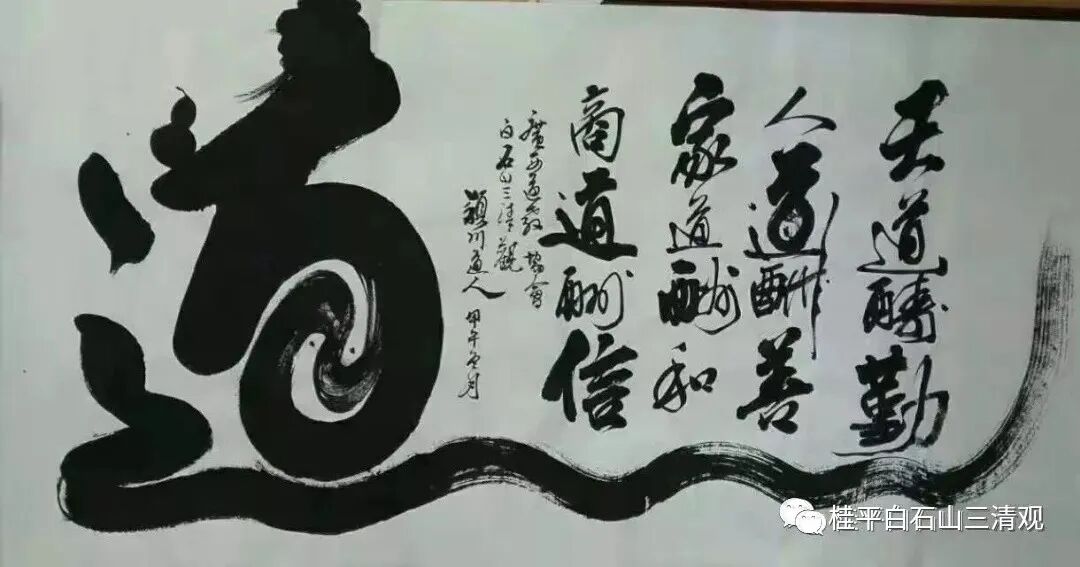 天道醻勤
人道酬善
家道酬和
商道酬信
廣西道教協會
白石山三清觀
穎川道人 甲午冬月
道
桂平白石山三清观